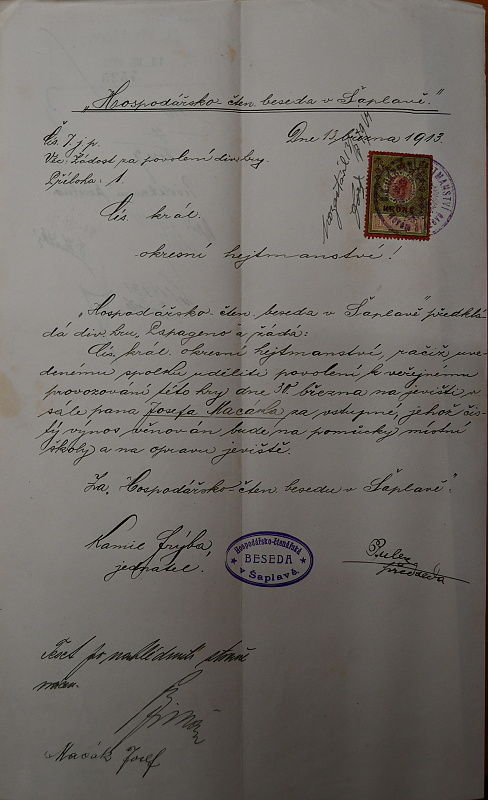 „Hospodářsko-čten. beseda v Šaplavě."
Čís. 7 j. p.
Dne 13. března 1913.
Věc: Žádost za povolení div. hry.
Příloha: 1.
Cís. král.
okresní hejtmanství!
„Hospodářsko-čten. beseda v Šaplavě" předklá-
dá div. hru „Papageno" a žádá:
Cís. král. okresní hejtmanství, račiž uve-
denému spolku uděliti povolení k veřejnému
provozování této hry dne 30. března na jevišti v
sále pana Josefa Macáka za vstupné, jehož čis-
tý výnos věnován bude na pomůcky místní
školy a na opravu jeviště.
Za „Hospodářsko-čten. besedu v Šaplavě":
Kamil Frýba,
jednatel.
Hospodářsko-čtenářská
BESEDA
v Šaplavě.
předseda
Text po nahlédnutí
Macák Josef